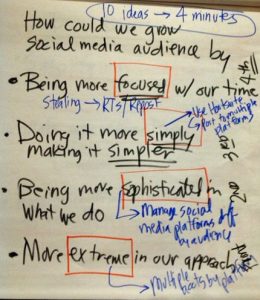 10 ideas → 4 minutes
How could we grow
social media audience by
• Being more focused w/ our time
Stealing → RTs/Repost
• Doing it more simply
making it simpler
Use Hootsuite
Post to multiple
platforms
• Being more sophisticated in
what we do
Manage social
media platforms diff
by audience
• More extreme in our approach
multiple
posts by platform